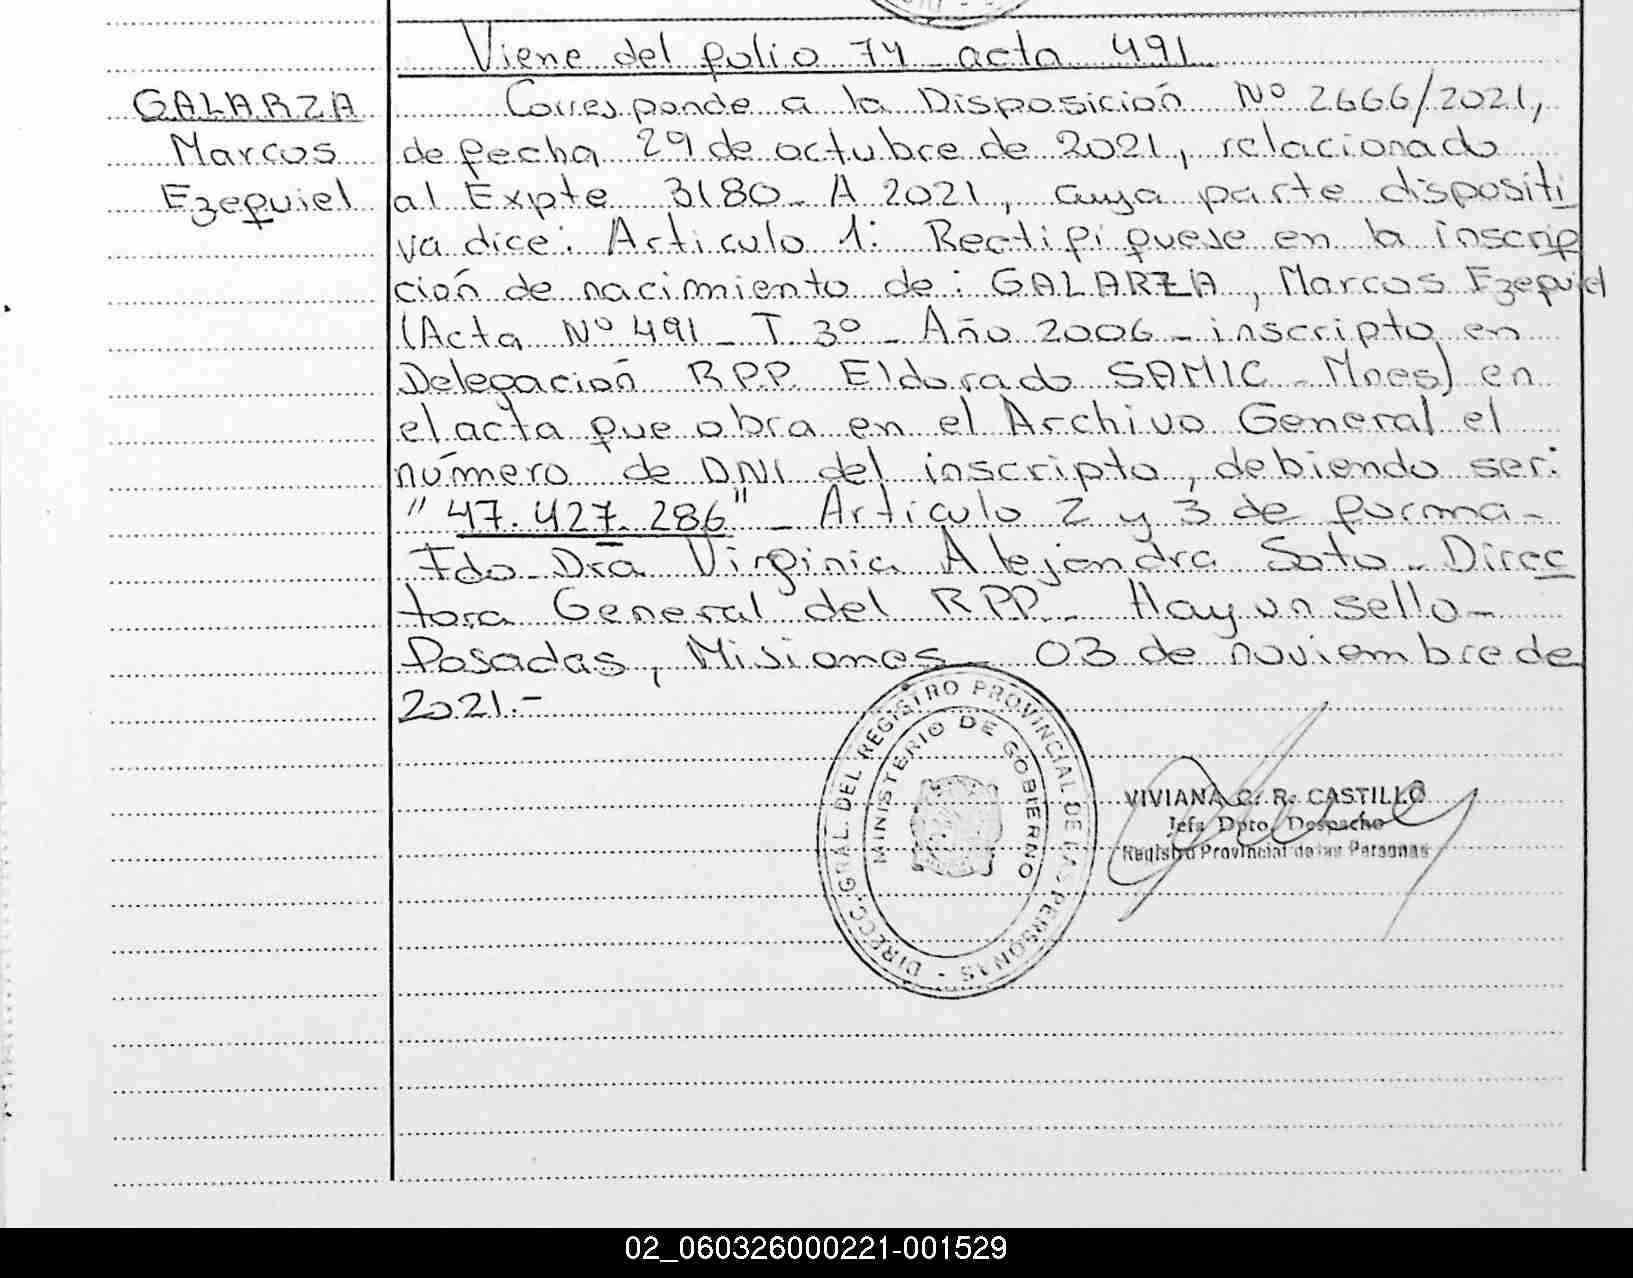 Viene del folio 74 acta 491
GALARZA
Marcos
Ezequiel
Corresponde a la Disposición Nº 2666/2021,
de fecha 29 de octubre de 2021, relacionado
al Expte 3180- A 2021, cuya parte dispositi
va dice: Articulo 1: Rectifiquese en la inscrip
ción de nacimiento de: GALARZA, Marcos Ezequiel
(Acta Nº 491 - T 3º - Año 2006 - inscripto en
Delegación RPP. Eldorado SAMIC - Mnes) en
el acta que obra en el Archivo General el
número de DNI del inscripto, debiendo ser:
"47.427.286" - Articulo 2 y 3 de forma -
Fdo Dra Virginia Alejandra Soto - Direc
tora General del RPP. - Hay un sello -
Posadas, Misiones - 03 de noviembre de
2021.-
DIRECC. GRAL. DEL REGISTRO PROVINCIAL DE LAS PERSONAS -
MINISTERIO DE GOBIERNO
VIVIANA C. R. CASTILLO
Jefa Dpto. Despacho
Registro Provincial de las Personas
02_060326000221-001529